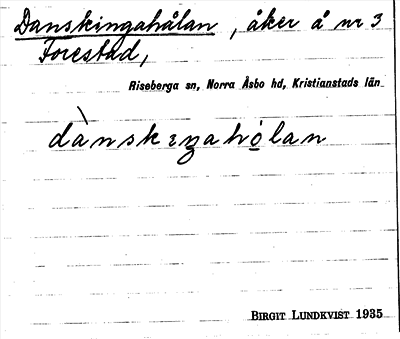 Danskingahålan, åker å nr 3
Forestad,
Riseberga sn, Norra Åsbo hd, Kristianstads län
BIRGIT LUNDKVIST 1935